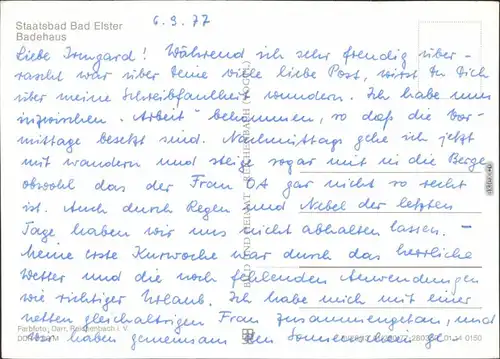 Staatsbad Bad Elster
Badehaus
6.9.77
Liebe Irmgard! Während ich sehr freudig über-
rascht war über Deine viele liebe Post, wirst Du Dich
über meine Schreibfaulheit wundern. Ich habe nun
inzwischen „Arbeit“ bekommen, so daß die Vor-
mittage besetzt sind. Nachmittags gehe ich jetzt
mit wandern und steige sogar mit in die Berge
obwohl das der Frau OA gar nicht so recht
ist. Auch durch Regen und Nebel der letzten
Tage haben wir uns nicht abhalten lassen. -
Meine erste Kurwoche war durch das herrliche
Wetter und die noch fehlenden Anwendungen
wie richtiger Urlaub. Ich habe mich mit einer
netten gleichaltrigen Frau zusammengetan, und
wir haben gemeinsam den Sonnenschein ge-
BILD UND HEIMAT REICHENBACH (VOGTL)
Farbfoto: Darr, Reichenbach i. V.